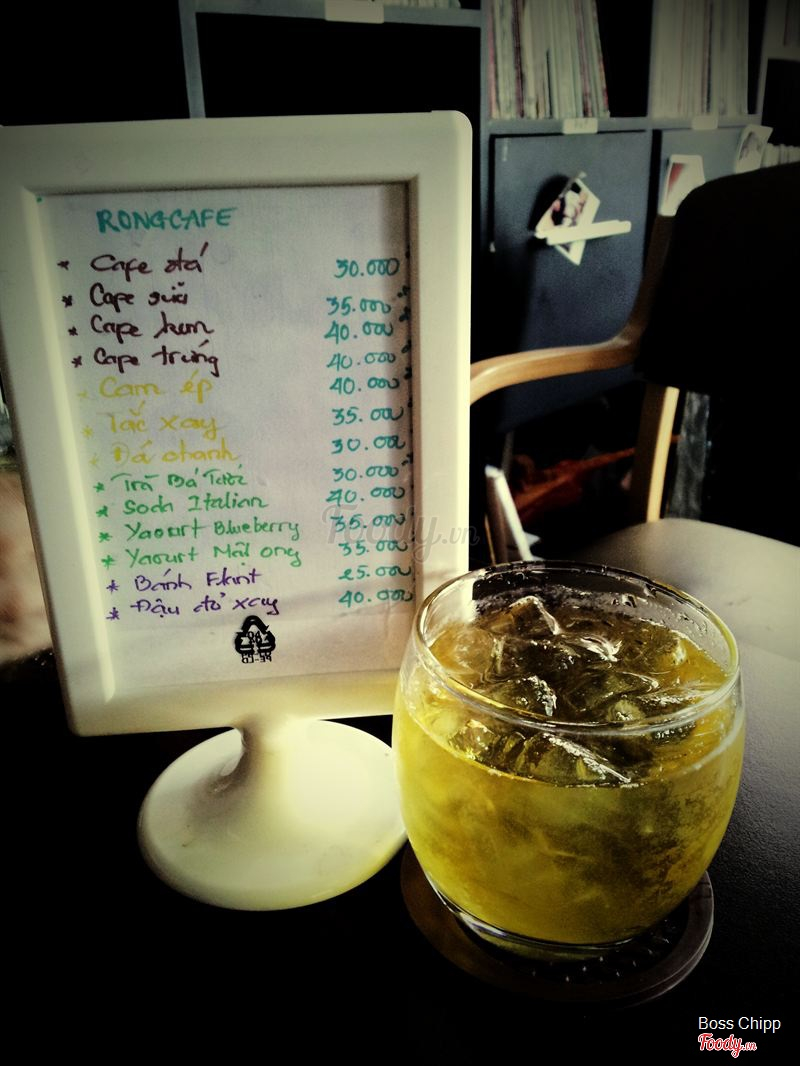 RONGCAFE
* Cafe đá 30.000
* Cafe sữa 35.000
* Cafe kem 40.000
* Cafe trứng 40.000
* Cam ép 40.000
* Tắc xay 35.000
* Đá chanh 30.000
* Trà Bá Tước 30.000
* Soda Italian 40.000
* Yaourt Blueberry 35.000
* Yaourt Mật ong 35.000
* Bánh Flant 25.000
* Đậu đỏ xay 40.000
Foody.vn
Boss Chipp
Foody.vn